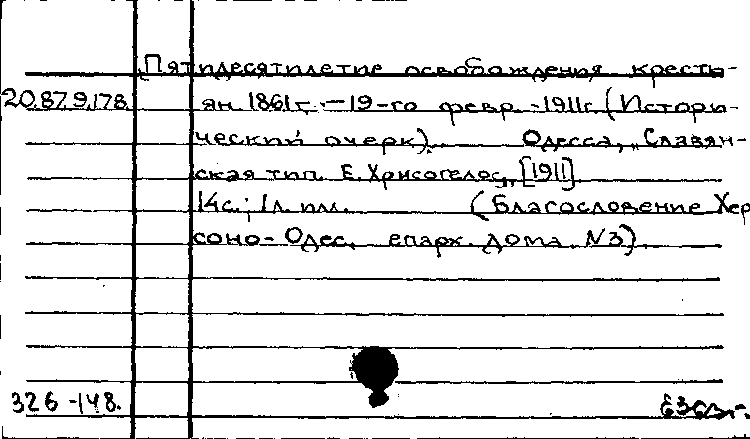 Пятидесятилетие освобождения кресть-
20.87.9.178. ян. 1861г. — 19-го февр. -1911г. (Истори-
ческий очерк). Одесса, „Славян-
ская тип. Е. Хрисогелос, [1911]
14с.; 1л. илл. (Благословение Хер
соно-Одес. епарх. дома. N3)
326-148.